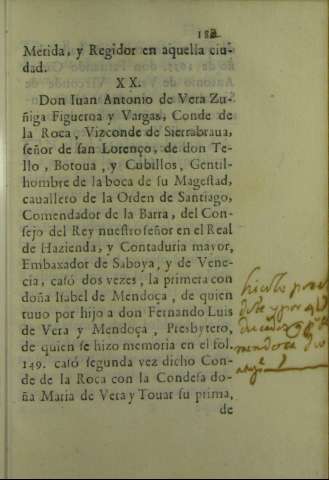 Merida, y Regidor en aquella ciu-
dad.
XX.
Don Iuan Antonio de Vera Zu-
ñiga Figueroa y Vargas, Conde de
la Roca, Vizconde de Sierrabraua,
señor de san Lorenço, de don Te-
llo, Botoua, y Cubillos, Gentil-
hombre de la boca de su Magestad,
cauallero de la Orden de Santiago,
Comendador de la Barra, del Con-
sejo del Rey nuestro señor en el Real
de Hazienda, y Contaduria mayor,
Embaxador de Saboya, y de Vene-
cia, casó dos vezes, la primera con
doña Isabel de Mendoça, de quien
tuuo por hijo a don Fernando Luis
de Vera y Mendoça, Presbytero,
de quien se hizo memoria en el fol.
149. casó segunda vez dicho Con-
de de la Roca con la Condesa do-
ña Maria de Vera y Touar su prima,
de